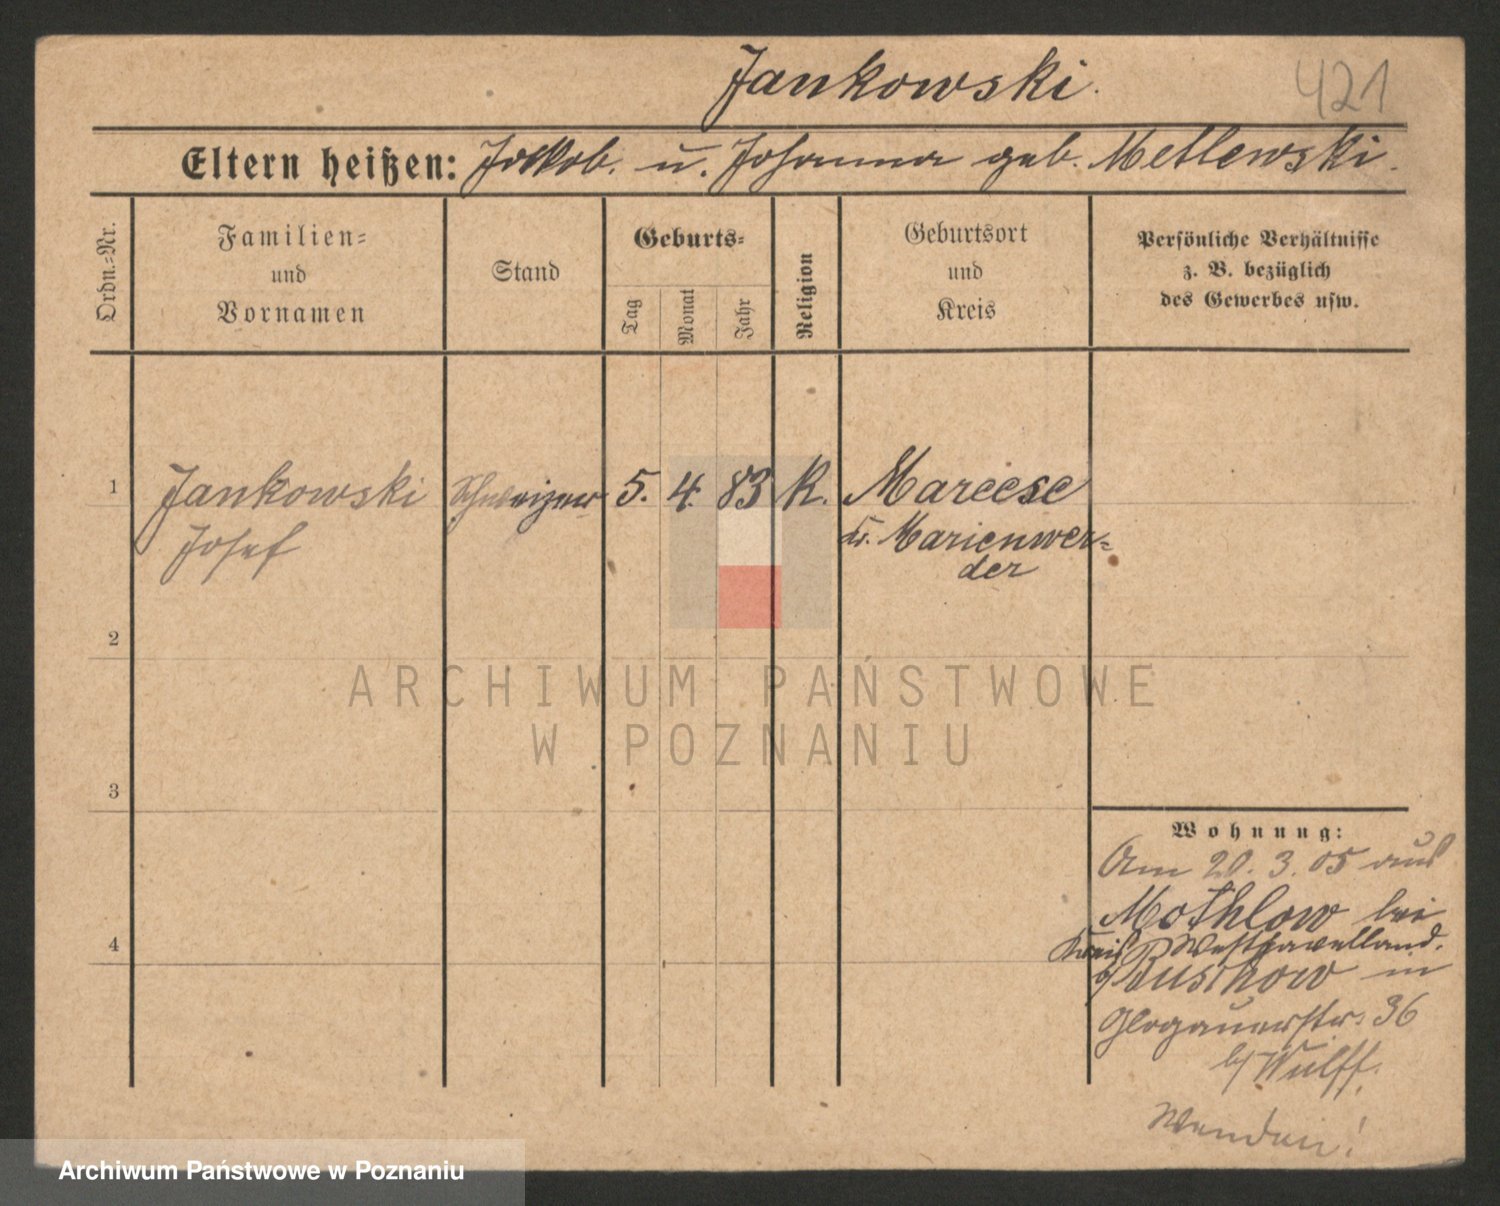 Jankowski.
421
Eltern heißen: Jakob. u. Johanna geb. Metlewski.
Ordn.=Nr.
Familien=
und
Vornamen
Stand
Geburts=
Tag
Monat
Jahr
Religion
Geburtsort
und
Kreis
Persönliche Verhältnisse
z. B. bezüglich
des Gewerbes usw.
1
Jankowski
Josef
Schweizer
5.
4.
83
K.
Mareese
Kr. Marienwer=
der
2
3
4
Wohnung:
Am 20. 3. 05 aus
Mothlow bei
Kreis Westhavelland.
Buschow in
Glogauerstr. 36
b/ Wulff.
Wenden!
ARCHIWUM PAŃSTWOWE
W POZNANIU
Archiwum Państwowe w Poznaniu